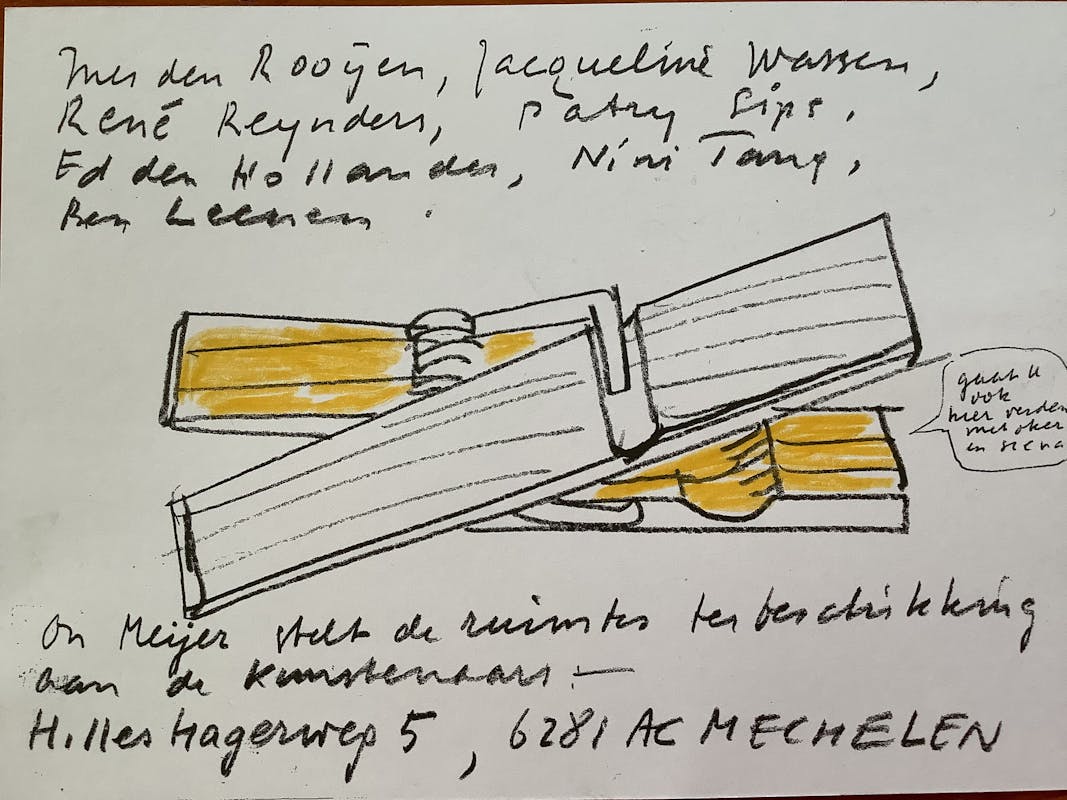 Ines den Rooijen, Jacqueline Wassen,
René Reynders, Patry Sips,
Ed den Hollander, Nini Tang,
Ben Leenen.
gaat u
ook
hier verder
met oker
en siena
On Meijer stelt de ruimtes ter beschikking
aan de kunstenaars.—
Hilleshagerweg 5, 6281 AC MECHELEN